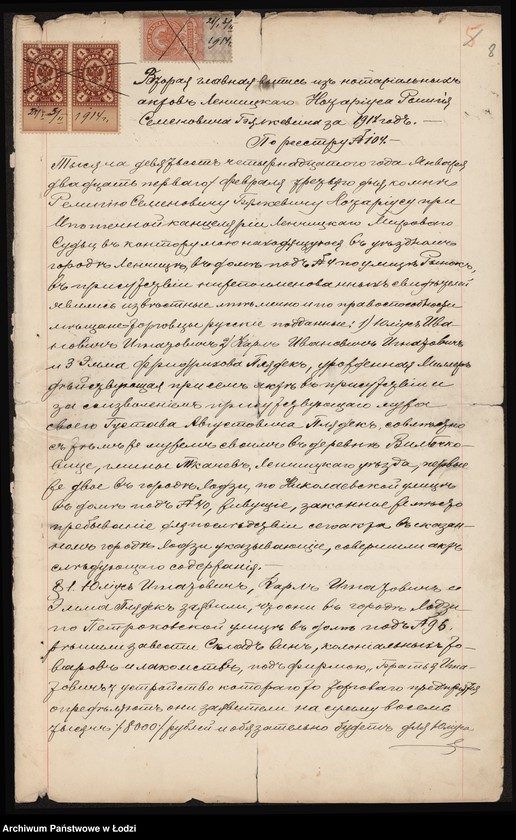 24/I 3/II
1914.
24/I 3/II
1914.
5
8
Вторая главная выпись изъ нотаріальныхъ
актовъ Ленчицкаго Нотаріуса Ремигія
Семеновича за 1914 годъ. —
По реестру № 104. —
Тысяча девятьсотъ четырнадцатого года Января
двадцать перваго/февраля третьяго дня, ко мнѣ
Ремигію Семеновичу Нотаріусу при
Ипотечной канцеляріи Ленчицкаго Мирового
Судьи въ контору мою находящуюся въ уѣздномъ
городѣ Ленчицѣ, въ домѣ подъ № 4 по улицѣ Рынокъ,
въ присутствіи нижепоименованныхъ свидѣтелей
явились извѣстные мнѣ лично и по правоспособности
мѣщане-торговцы русскіе подданные: 1) Юліусъ Ива-
новичъ Игназовичъ 2) Карлъ Ивановичъ Игназовичъ
и 3 Эмма Фердинандовна Тядекъ, урожденная Миллеръ
дѣйствующая при семъ актѣ въ присутствіи и
за соизволеніемъ присутствующаго мужа
своего Густава Августовича Тядекъ, совмѣстно
съ тѣмъ же мужемъ своимъ въ деревнѣ
гмины Ткачевъ, Ленчицкаго уѣзда, первые
же двое въ городѣ Лодзи, по Николаевской улицѣ
въ домѣ подъ № 40, живущіе, законное же мѣсто
пребываніе для послѣдствій сего акта въ сказан-
номъ городѣ Лодзи указывающіе, совершили актъ
слѣдующаго содержанія. —
§ 1. Юліусъ Игназовичъ, Карлъ Игназовичъ и
Эмма Тядекъ заявили, что они въ городѣ Лодзи
по Петроковской улицѣ въ домѣ подъ № 96
рѣшили завести Складъ винъ, колоніальныхъ то-
варовъ и лакомствъ, подъ фирмою „Братья Игна-
зовичъ" устройство котораго торговаго предпріятія
опредѣляютъ они заявители на сумму восемь
тысячъ /8000/ рублей и обязательно будетъ для
Archiwum Państwowe w Łodzi